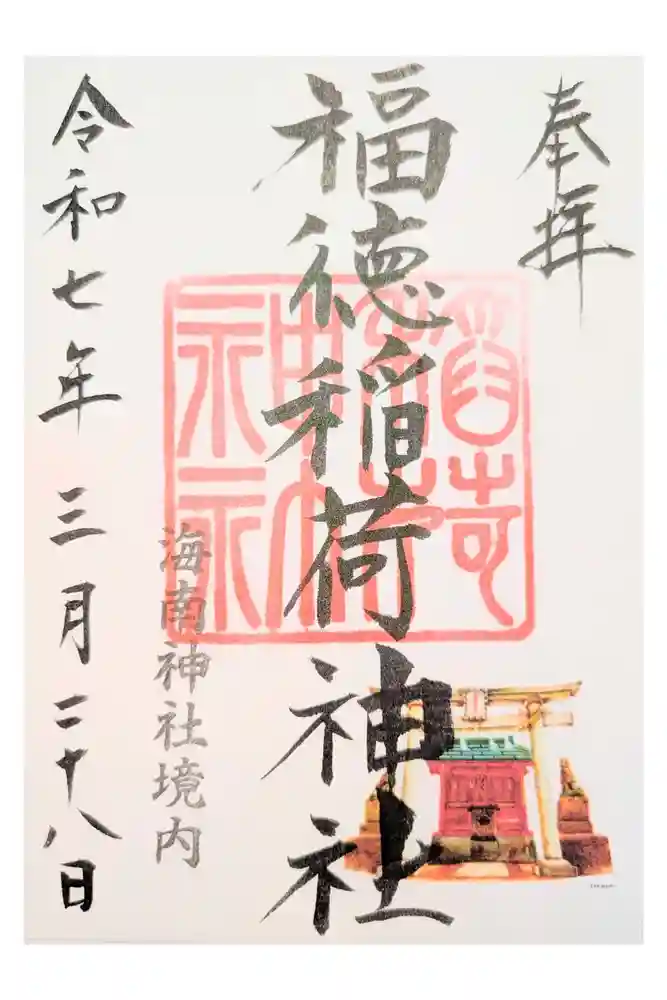 奉拝
福徳稲荷神社
海南神社境内
令和七年三月二十八日